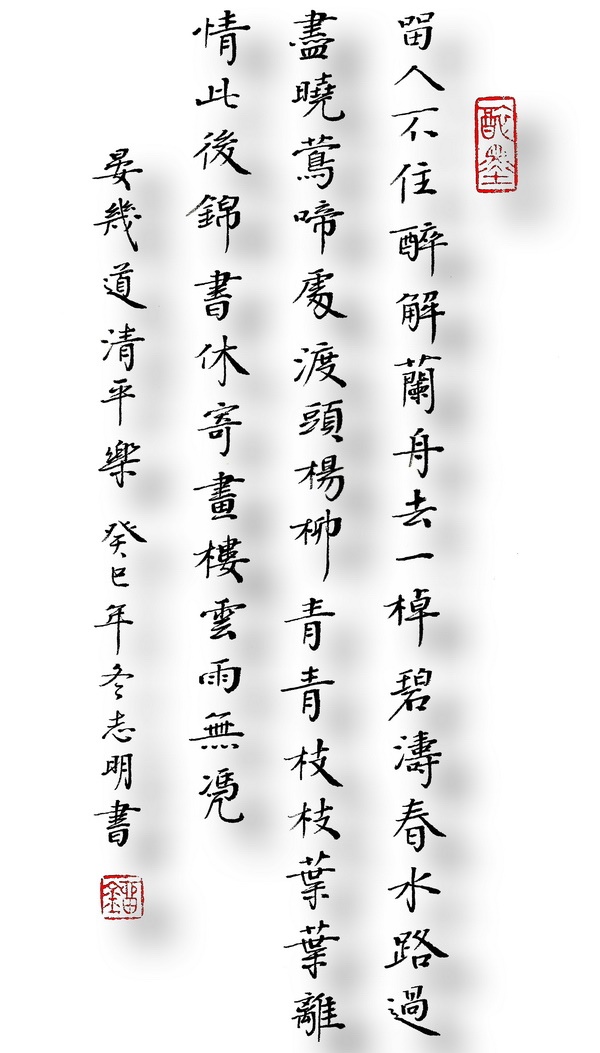 醉墨
留人不住醉解蘭舟去一棹碧濤春水路過
盡曉鶯啼處渡頭楊柳青青枝枝葉葉離
情此後錦書休寄畫樓雲雨無凴
晏幾道清平樂 癸巳年冬志明書